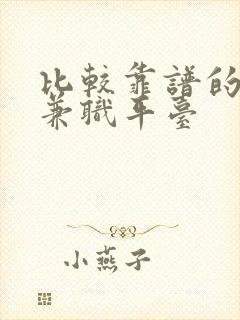 比較靠譜的
兼職平臺
小燕子